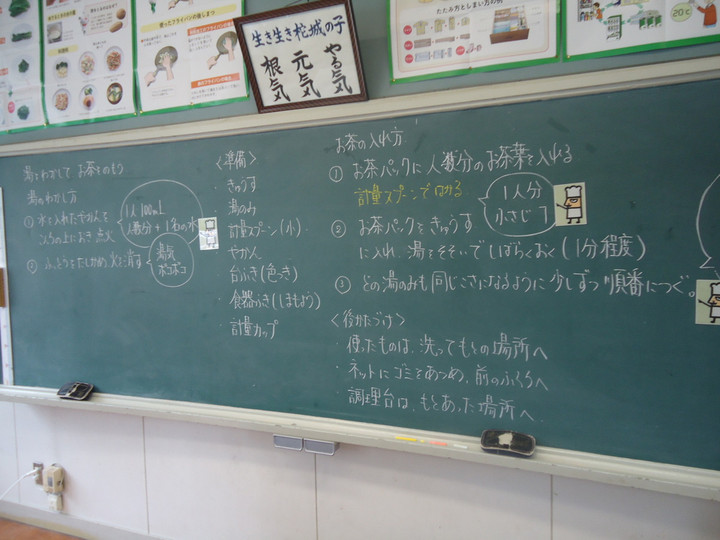 生き生き松城の子
やる気
元気
根気
たたみ方としまい方の例
20℃
湯をわかして お茶をのもう
湯のわかし方
① 水を入れたやかんを
こんろの上におき 点火
1人100mL
人数分+1名の水
② ふっとうをたしかめ、火を消す
湯気
ボコボコ
<準備>
・きゅうす
・湯のみ
・計量スプーン(小)
・やかん
・台ふき(色つき)
・食器ふき(しましもう)
・計量カップ
お茶の入れ方
① お茶パックに人数分のお茶葉を入れる
計量スプーンではかる
1人分
小さじ1
② お茶パックをきゅうす
に入れ、湯をそそいでしばらくおく(1分程度)
③ どの湯のみも同じこさになるように少しずつ順番につぐ。
<後かたづけ>
・使ったものは、洗ってもとの場所へ
・ネットにゴミをあつめ、前のふくろへ
・調理台は、もとあった場所へ